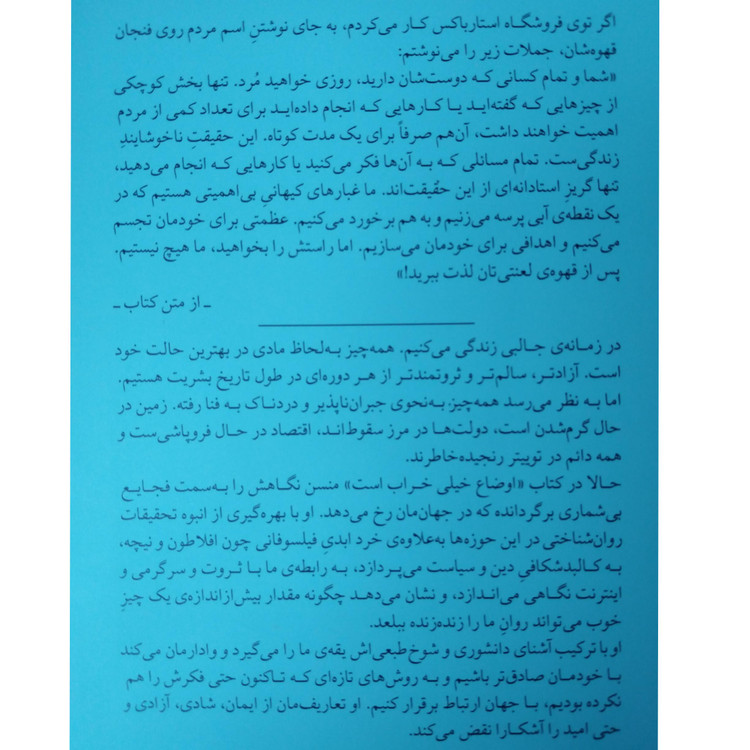 اگر توی فروشگاه استارباکس کار می‌کردم، به جای نوشتنِ اسم مردم روی فنجان
قهوه‌شان، جملات زیر را می‌نوشتم:
«شما و تمام کسانی که دوست‌شان دارید، روزی خواهید مُرد. تنها بخش کوچکی
از چیزهایی که گفته‌اید یا کارهایی که انجام داده‌اید برای تعداد کمی از مردم
اهمیت خواهند داشت، آن‌هم صرفاً برای یک مدت کوتاه. این حقیقتِ ناخوشایندِ
زندگی‌ست. تمام مسائلی که به آن‌ها فکر می‌کنید یا کارهایی که انجام می‌دهید،
تنها گریزِ استادانه‌ای از این حقیقت‌اند. ما غبارهای کیهانیِ بی‌اهمیتی هستیم که در
یک نقطه‌ی آبی پرسه می‌زنیم و به هم برخورد می‌کنیم. عظمتی برای خودمان تجسم
می‌کنیم و اهدافی برای خودمان می‌سازیم. اما راستش را بخواهید، ما هیچ نیستیم.
پس از قهوه‌ی لعنتی‌تان لذت ببرید!»
ـ از متن کتاب ـ
در زمانه‌ی جالبی زندگی می‌کنیم. همه‌چیز به‌لحاظ مادی در بهترین حالت خود
است. آزادتر، سالم‌تر و ثروتمندتر از هر دوره‌ای در طول تاریخ بشریت هستیم.
اما به نظر می‌رسد همه‌چیز به‌نحوی جبران‌ناپذیر و دردناک به فنا رفته. زمین در
حال گرم‌شدن است، دولت‌ها در مرز سقوط‌اند، اقتصاد در حال فروپاشی‌ست و
همه دائم در توییتر رنجیده‌خاطرند.
حالا در کتاب «اوضاع خیلی خراب است» منسن نگاهش را به‌سمت فجایع
بی‌شماری برگردانده که در جهان‌مان رخ می‌دهد. او با بهره‌گیری از انبوه تحقیقات
روان‌شناختی در این حوزه‌ها به‌علاوه‌ی خرد ابدیِ فیلسوفانی چون افلاطون و نیچه،
به کالبدشکافیِ دین و سیاست می‌پردازد، به رابطه‌ی ما با ثروت و سرگرمی و
اینترنت نگاهی می‌اندازد، و نشان می‌دهد چگونه مقدار بیش‌ازاندازه‌ی یک چیزِ
خوب می‌تواند روانِ ما را زنده‌زنده ببلعد.
او با ترکیب آشنای دانشوری و شوخ‌طبعی‌اش یقه‌ی ما را می‌گیرد و وادارمان می‌کند
با خودمان صادق‌تر باشیم و به روش‌های تازه‌ای که تاکنون حتی فکرش را هم
نکرده بودیم، با جهان ارتباط برقرار کنیم. او تعاریف‌مان از ایمان، شادی، آزادی و
حتی امید را آشکارا نقض می‌کند.